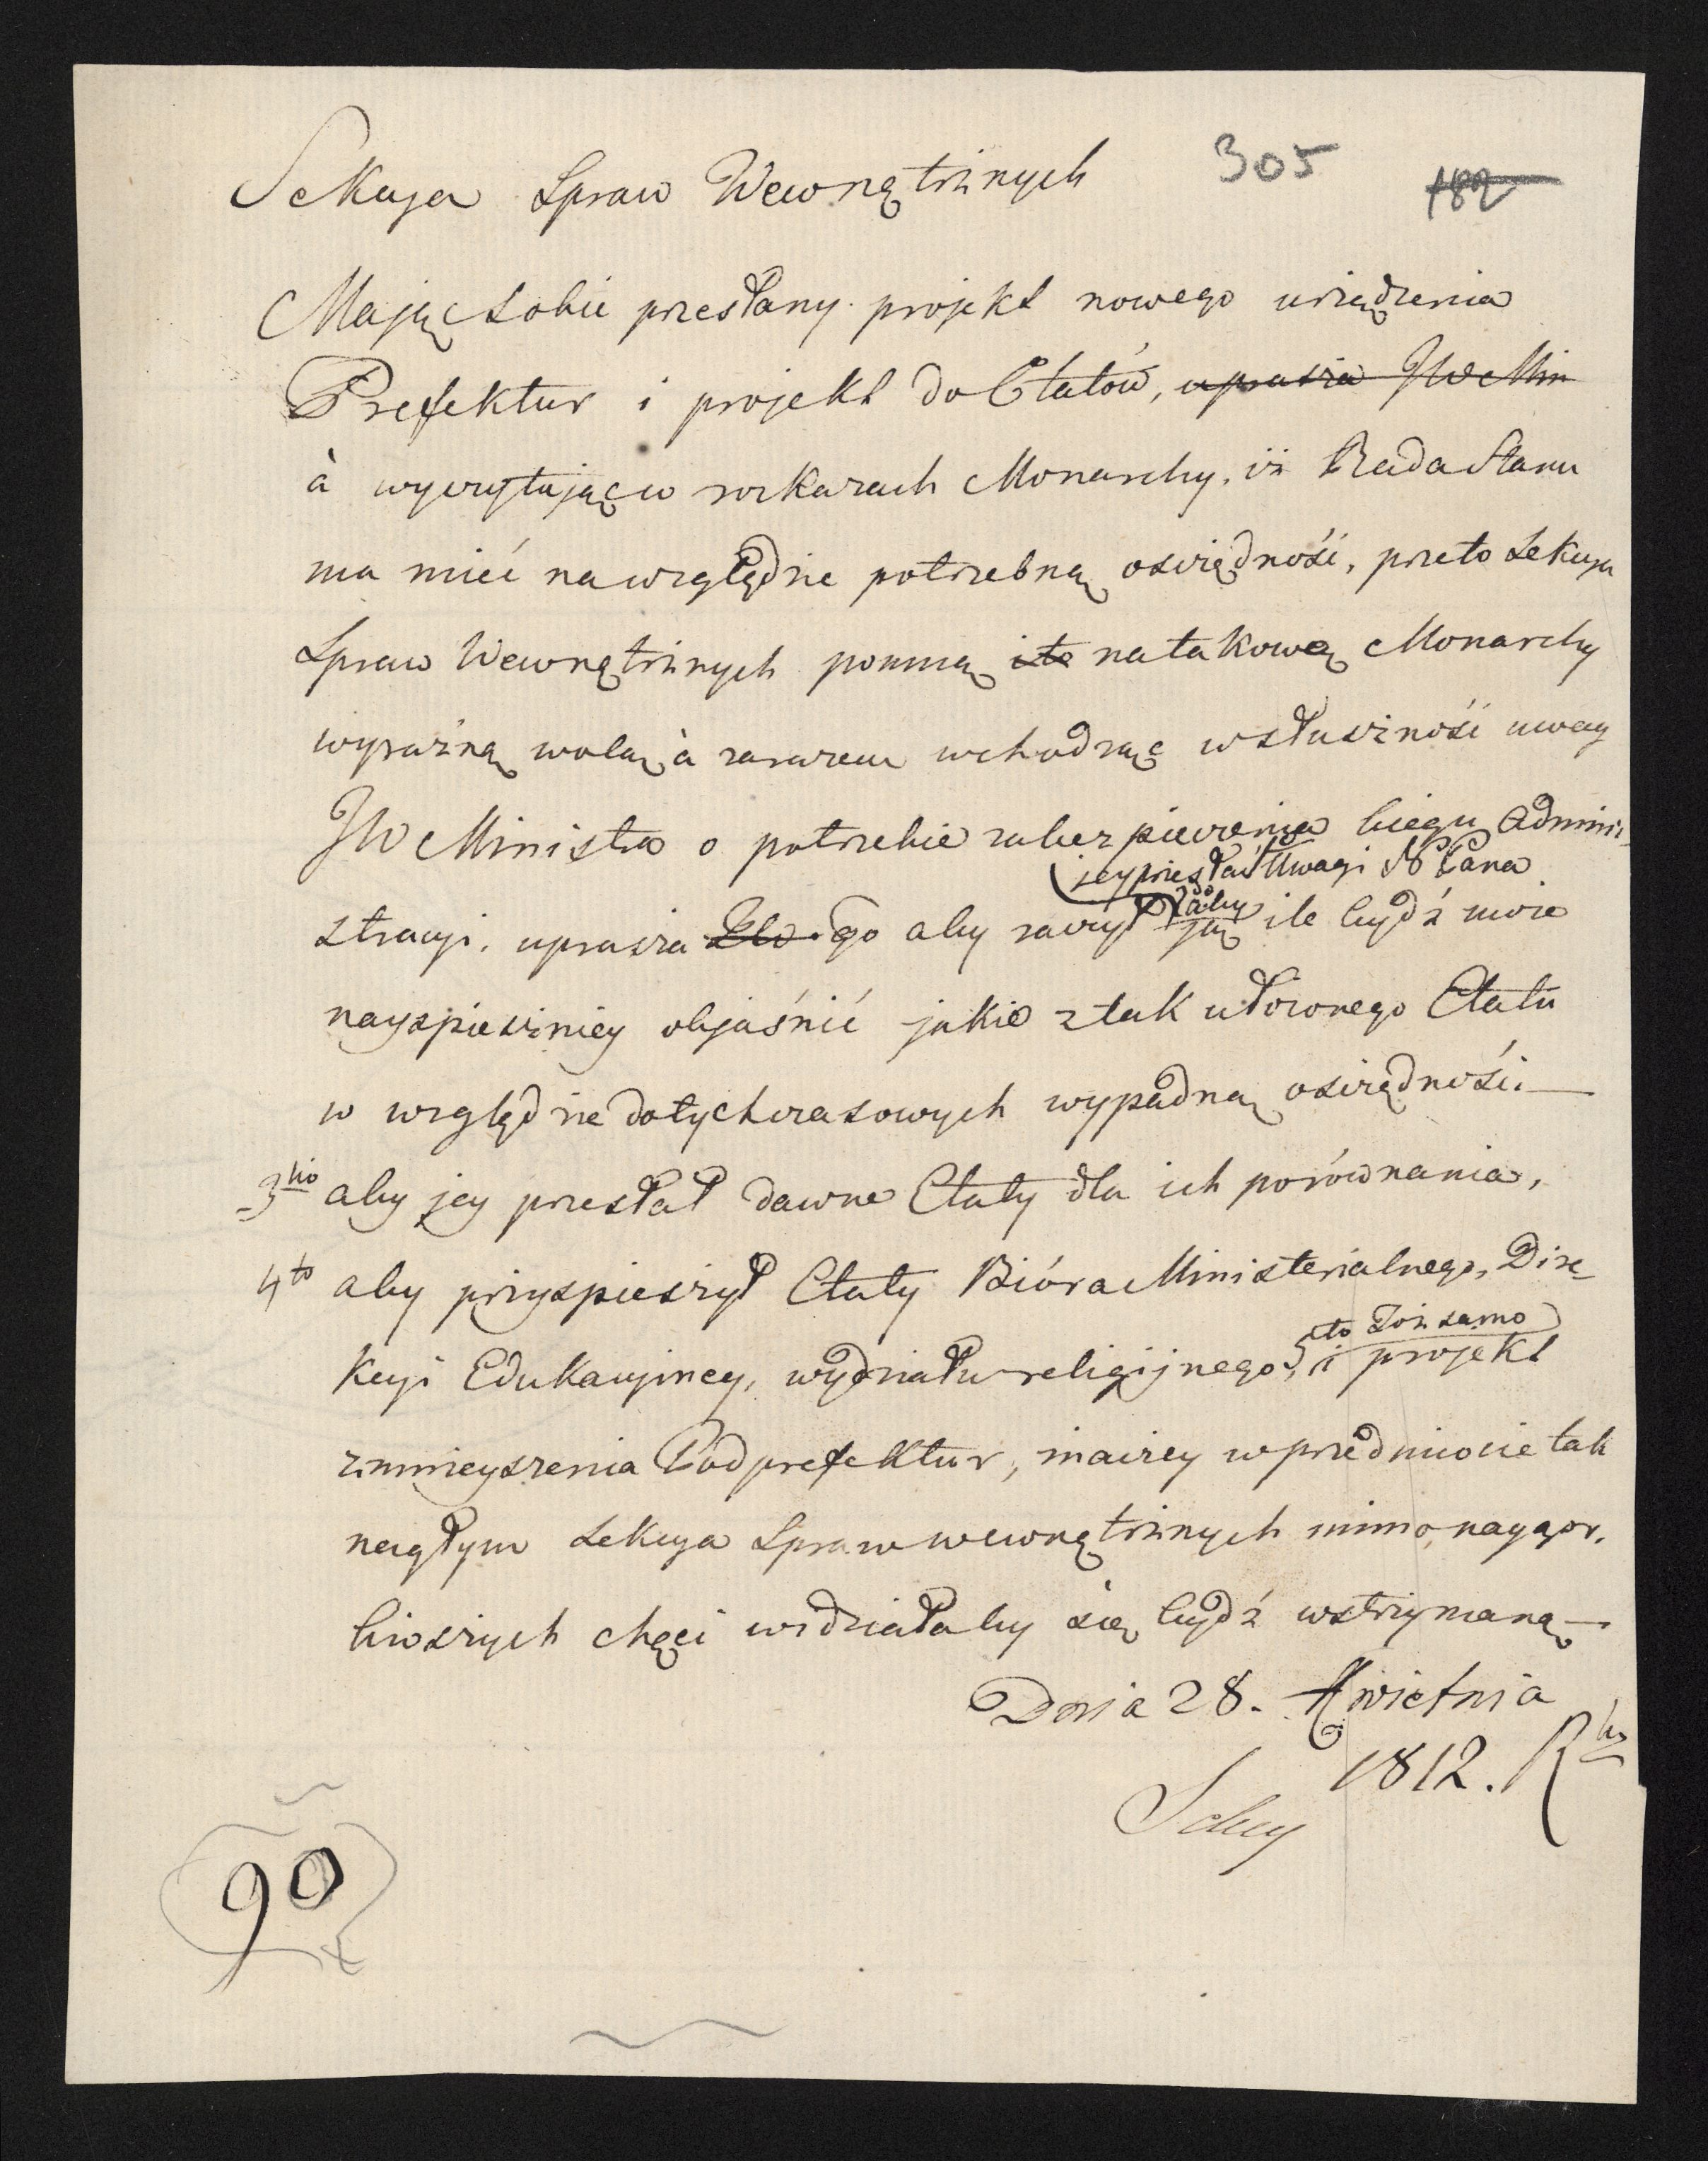 Sekcya Spraw Wewnętrznych 305 182
Mając sobie przesłany projekt nowego urządzenia
Prefektur i projekt do Etatów, uprasza JW Min
à wyczytując w rozkazach Monarchy, iż Rada Stanu
ma mieć na względzie potrzebną oszczędność, przeto Sekcya
Spraw Wewnętrznych pomną na takową Monarchy
wyraźną wolą, à zarazem wchodząc w słuszność uwag
JW Ministra o potrzebie zabezpieczenia biegu Admini-
jey przesłać Uwagi N Pana
stracyi, uprasza Go aby raczył 2do aby ją ile bydź może
nayspieszniey objaśnić jakie z tak ułożonego Etatu
w względzie dotychczasowych wypadną oszczędności.—
3tio aby jey przesłał dawne Etaty dla ich porównania,
4to aby przyspieszył Etaty Bióra Ministerialnego, Dire-
to toż samo
kcyi Edukacyiney, wydziału religijnego, i projekt
zmnieyszenia Podprefektur, inaczey w przedmiocie tak
nagłym Sekcya Spraw wewnętrznych mimo naygor-
liwszych chęci widziałaby się bydź wstrzymaną—
Dnia 28. Kwietnia
1812. Rku
90